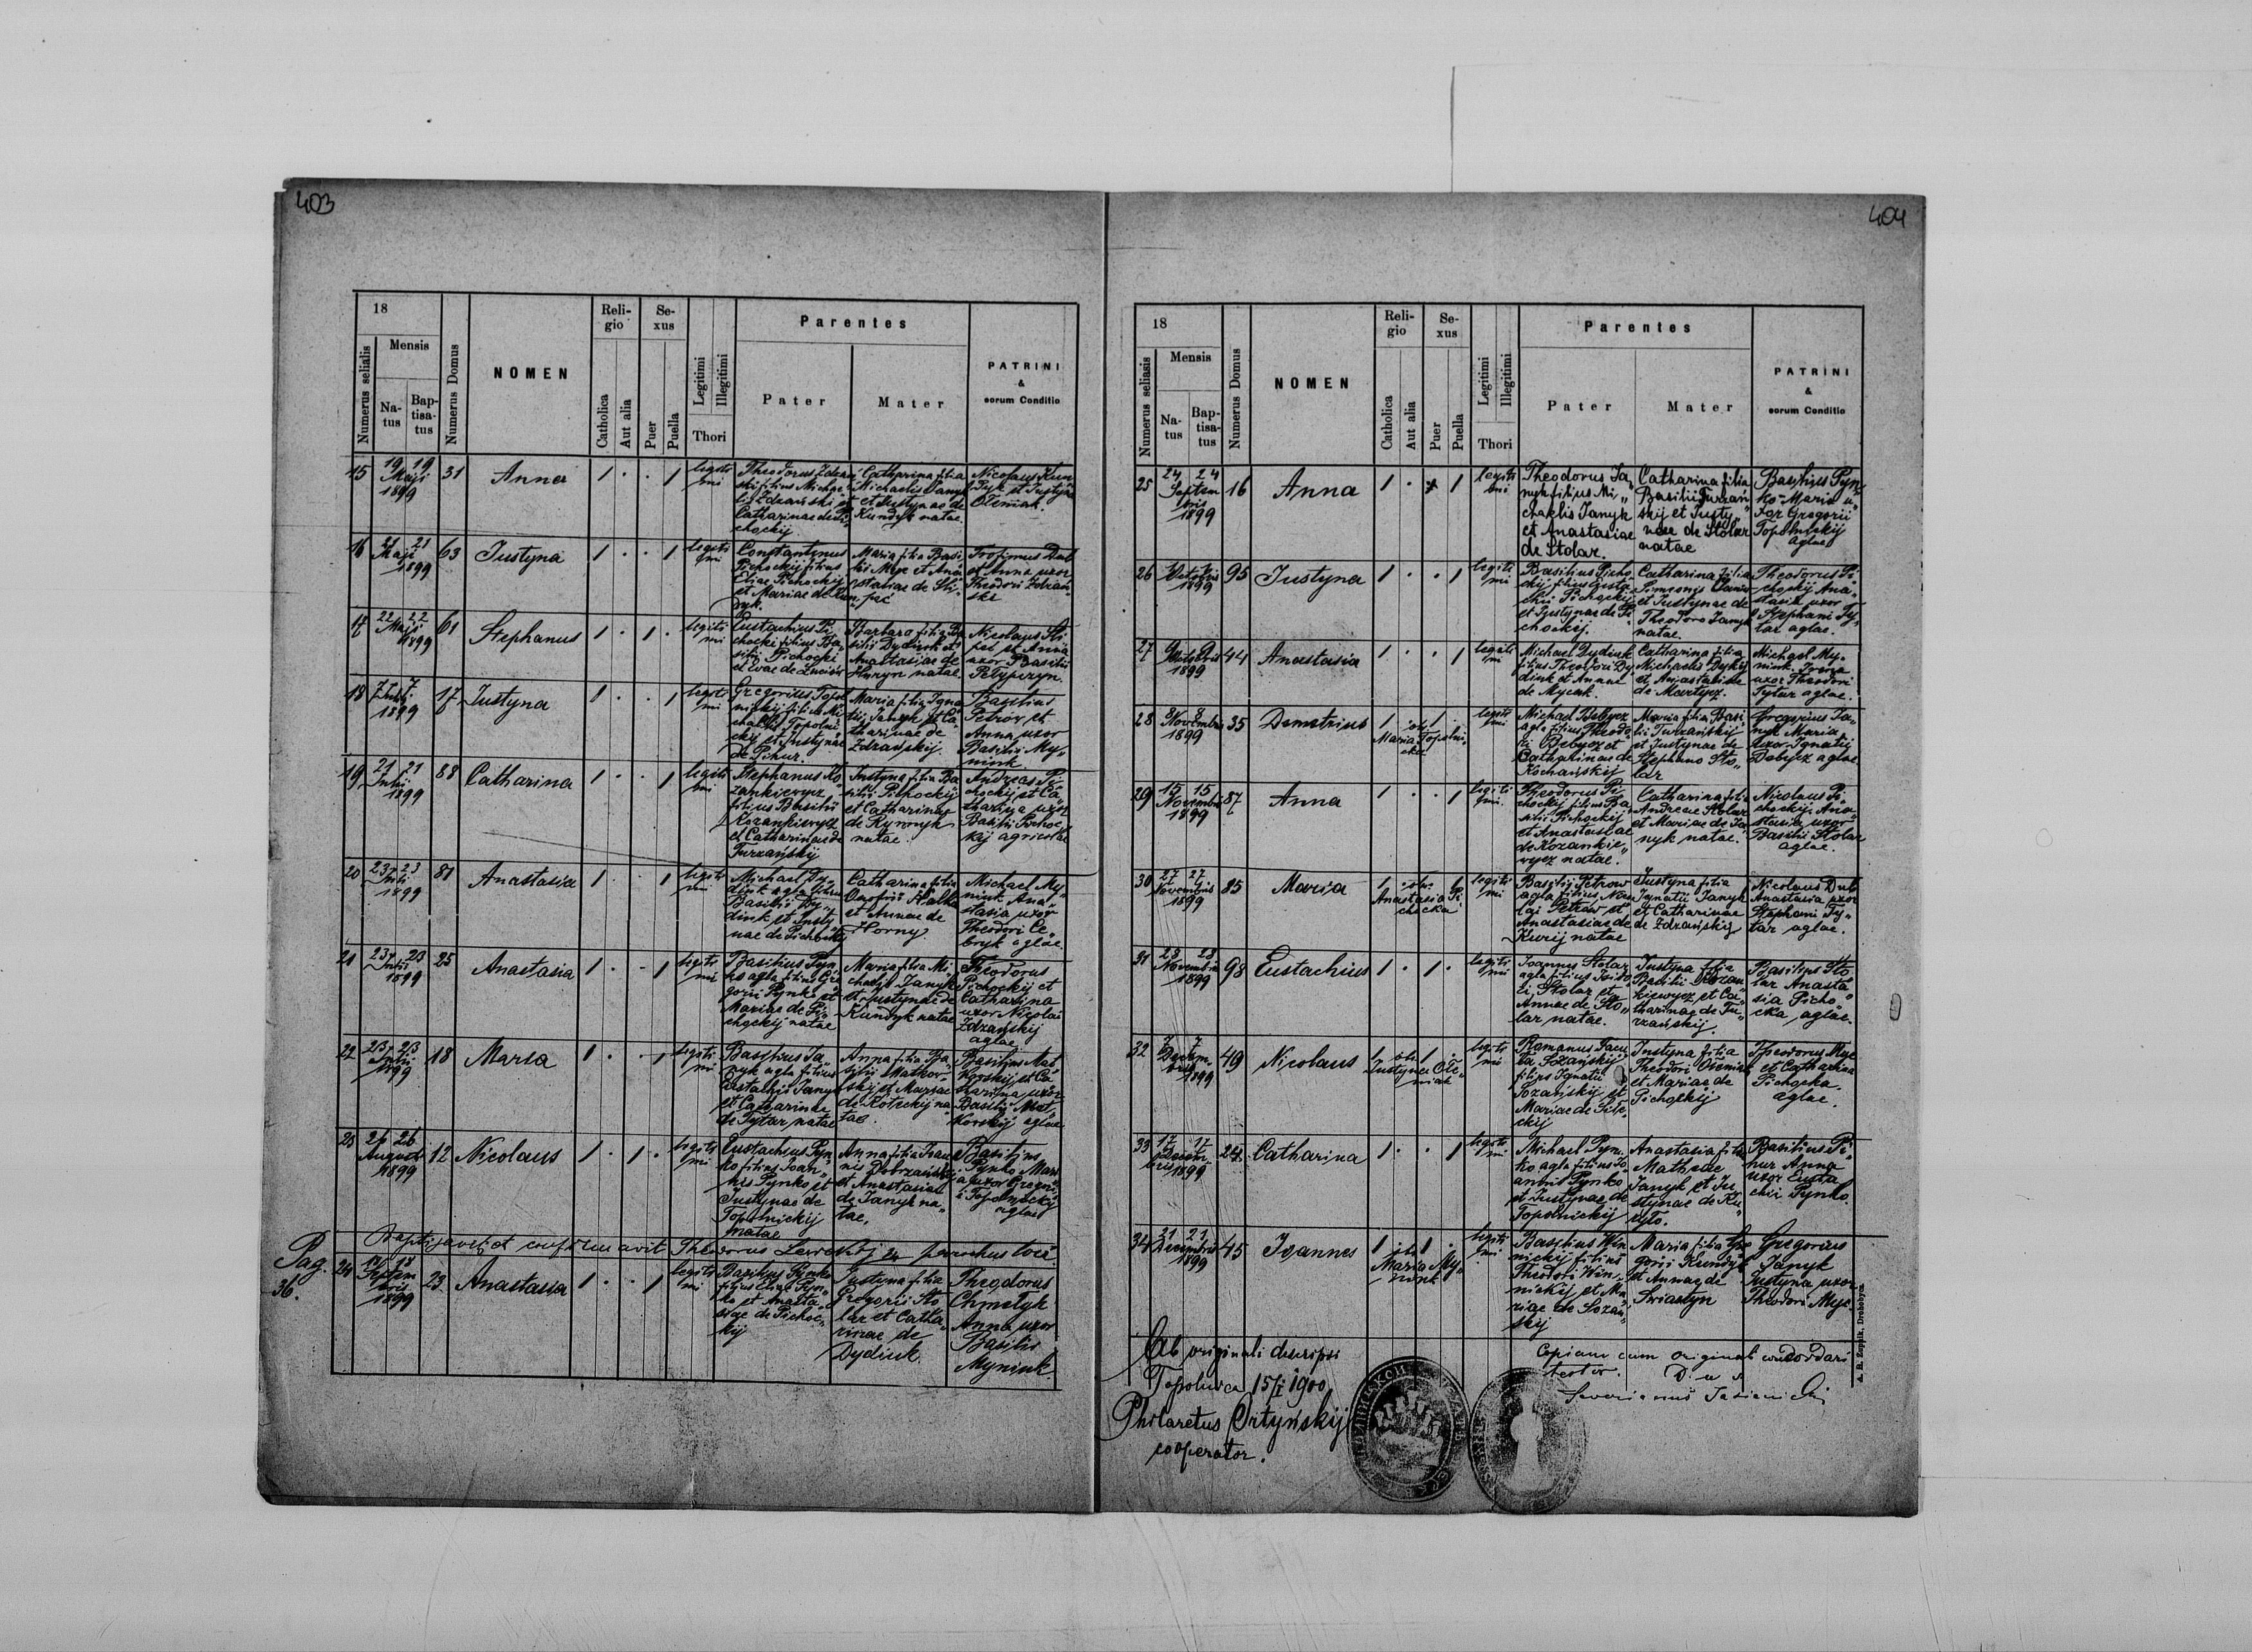 403
18
Numerus selialis
Mensis
Na-
tus
Bap-
tisa-
tus
Numerus Domus
NOMEN
Reli-
gio
Catholica
Aut alia
Se-
xus
Puer
Puella
Legitimi
Illegitimi
Thori
Parentes
Pater
Mater
PATRINI
&
eorum Conditio
15 19 19 Maji 1899 31 Anna 1 . . 1 legiti
mi
Catharina filia
Michaelis Janyk
et Justynae de
Kundyk natae.
16 21 21 Maji 1899 63 Justyna 1 . . 1 legiti
mi
Constantynus
Pichockij filius
Eliae Pichockij
et Mariae de
Trofimus Dub
et Anna uxor
Theodori
17 22 22 Maji 1899 61 Stephanus 1 . 1 . legiti
mi
Eustachius Pi
chocki filius Ba
silii Pichocki
Barbara filia Ba
silii Dydiuk et
Anastasiae de
Huryn natae.
et Anna
uxor Basilii
18 7 7 Julii 1899 17 Justyna 1 . . 1 legiti
mi
Maria filia Igna
tii Janyk et Ca
tharinae de
Zdzańskij
Basilius
Petrów et
Anna uxor
Basilii My„
niuk
19 21 21 Julii 1899 88 Catharina 1 . . 1 legiti
mi
Stephanus Ko
zankiewycz
filius Basilii
Kozankiewycz
et Catharinae de
Turzańskij
Justyna filia Ba
silii Pichockij
et Catharinae
de Rymnyk
natae.
Andreas Pi
chockij et Ca
tharina uxor
Basilii Pichoc
kij agricolae
20 23 23 Julii 1899 81 Anastasia 1 . . 1 legiti
mi
Michael Dy„
diuk agla filius
Basilii Dy„
diuk et Justy
nae de Pichockij
Catharina filia
Onofrii
et Annae de
Horny.
Michael My„
niuk Ana„
stasia uxor
Theodori Ce„
bryk aglae.
21 23 23 Julii 1899 25 Anastasia 1 . . 1 legiti
mi
Basilius Pyn„
ko agla filius Gre
gorii Pynko et
Mariae de Pi„
chockij natae
Maria filia Mi„
chaelis Janyk
et Justynae de
Kundyk natae
Theodorus
Pichockij et
Catharina
uxor Nicolai
Zdzańskij
aglae
22 23 23 Julii 1899 18 Maria 1 . . 1 legiti
mi
Basilius Ja„
nyk agla filius
Eustachii Janyk
et Catharinae
de Tytar natae
Anna filia Ba„
silii Matkow„
skij et Mariae
de Koteckij na
tae.
uxor
Basilii
aglae
23 26 26 August 1899 12 Nicolaus 1 . 1 . legiti
mi
Eustachius Pyn
ko filius Joan„
nis Pynko et
Justynae de
Topolnickij
natae
Anna filia Joan
nis Dobrzański
et Anastasiae
de Janyk na„
tae,
Basilius
Pynko Mari
a uxor Gregori
i Topolnickij
aglae
Baptisavit et confirmavit Theodorus parochus loci.
Pag.
36.
24 Septem
bris
1899 23 Anastasia 1 . . 1 legiti
mi
Basilius Pynko
filius Eliae Pyn„
ko et Anasta„
siae de Pichoc„
kij
Justyna filia
Gregorii Sto
lar et Catha„
rinae de
Dydiuk.
Theodorus
Chmetyk
Anna uxor
Basilii
Myniuk.
404
18
Numerus seliasis
Mensis
Na-
tus
Bap-
tisa-
tus
Numerus Domus
NOMEN
Reli-
gio
Catholica
Aut alia
Se-
xus
Puer
Puella
Legitimi
Illegitimi
Thori
Parentes
Pater
Mater
PATRINI
&
eorum Conditio
25 24 24 Septem
bris
1899 16 Anna 1 . 1 legiti
mi
Theodorus Ja„
nyk filius Mi„
chaelis Janyk
et Anastasiae
de Stolar.
Catharina filia
Basilii Turzań
skij et Justy„
nae de Stolar
natae
Basilius Pyn
ko Maria u„
xor Gregorii
Topolnickij
aglae
26 Octobris 1899 95 Justyna 1 . . 1 legiti
mi
Basilius Picho„
ckij filius Eusta
chii Pichockij
et Justynae de Pi
chockij.
Catharina filia
Simeonis
et Justynae de
Theodoro Janyk
natae.
Theodorus Pi„
chockij Ana„
stasia uxor
Stephani Ty„
tar aglae.
27 9 9 Octobris 1899 44 Anastasia 1 . . 1 legiti
mi
Michael Dydiuk
filius Theodori Dy
diuk et Annae
de Mycak.
Catharina filia
Michaelis Dykij
et Anastasiae
de Martycz.
Michael My„
niuk. Irena
uxor Theodori
Tytar aglae.
28 8 8 Novembris 1899 35 Demetrius 1 obs. 1 . legiti
mi
Maria Topolni„
cka
Michael Bebycz
agla filius Theodo„
ri Bebycz et
Catharinae de
Kochańskij
Maria filia Basi„
lii Turzańskij
et Justynae de
Stephano Sto„
lar
Gregorius Ja„
nyk Maria
uxor Ignatij
Bebycz aglae
29 15 15 Novembris 1899 87 Anna 1 . . 1 legiti
mi.
Theodorus Pi„
chockij filius Ba
silii Pichockij
et Anastasiae
de Kozankie„
wycz natae.
Catharina filia
Andreae Stolar
et Mariae de Ja„
nyk natae.
Nicolaus Pi„
chockij Ana„
stasia uxor
Basilii Stolar
aglae.
30 27 27 Novembris 1899 85 Maria 1 obs. 1 legiti
mi
Anastasia Pi
chocka
Basilij Petrow
agla filius Nico
lai Petrow et
Anastasiae de
Kurij natae
Justyna filia
Ignatii Janyk
et Catharinae
de Zdzańskij
Nicolaus Dub
Anastasia uxor
Stephani Ty„
tar aglae.
31 28 28 Novembris 1899 98 Eustachius 1 . 1 . legiti
mi
Joannes Stolar
agla filius
Stolar et
Annae de Sto„
lar natae.
Justyna filia
Basilii Kozan„
kiewycz et Ca„
tharinae de Tu„
rzańskij.
Basilius Sto
lar Anasta
sia Picho„
cka, aglae.
32 7 7 Decem
bris
1899 49 Nicolaus 1 obs. 1 . legiti
mi
Justyna Ole„
niak
Romanus
Sozańskij
filius Ignatii
Sozańskij et
Mariae de
Justyna filia
Theodori Oleniak
et Mariae de
Pichockij
Theodorus Myc
et Catharina
Pichocka.
aglae.
33 17 17 Decem
bris 1899 24 Catharina 1 . . 1 legiti
mi
Michael Pyn„
ko agla filius Jo
annis Pynko
et Justynae de
Topolnickij
Anastasia filia
Mathaei
Janyk et Ju
stynae de
Basilius Pi„
hur Anna
uxor Eusta
chii Pynko
34 21 21 Decembris 1899 45 Joannes 1 obs. 1 . legiti
mi
Maria My„
niuk
Basilius Win
nickij filius
Theodori Win„
nickij et Ma
riae de Sozań„
skij
Maria filia Gre
gorii Kundyk
et Annae de
Swiastyn
Gregorius
Janyk
Justyna uxor
Theodori Myc.
Ab originali descripsi
Topolnica 15/I 1900
Philaretus Ortyńskij
cooperator.
Copiam cum originali concordari
testor.
A. H. Żupnik, Drohobycz